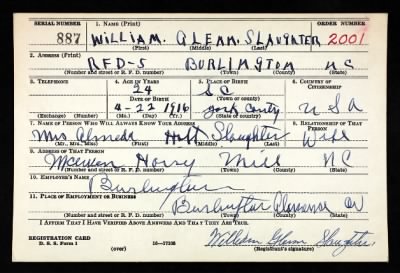 SERIAL NUMBER 1. NAME (Print) ORDER NUMBER
887 WILLIAM. GLENN. SLAUGHTER 2001
(First) (Middle) (Last)
2. ADDRESS (Print)
RFD-5 BURLINGTON NC
(Number and street or R. F. D. number) (Town) (County) (State)
3. TELEPHONE 4. AGE IN YEARS 5. PLACE OF BIRTH 6. COUNTRY OF CITIZENSHIP
24 SC
DATE OF BIRTH (Town or county)
4-22 1916 York County USA
(Exchange) (Number) (Mo.) (Day) (Yr.) (State or country)
7. NAME OF PERSON WHO WILL ALWAYS KNOW YOUR ADDRESS 8. RELATIONSHIP OF THAT PERSON
Mrs Almeda Slaughter Wife
(Mr., Mrs., Miss) (First) (Middle) (Last)
9. ADDRESS OF THAT PERSON
Mill NC
(Number and street or R. F. D. number) (Town) (County) (State)
10. EMPLOYER'S NAME
Burlington
11. PLACE OF EMPLOYMENT OR BUSINESS
Burlington Alamance
(Number and street or R. F. D. number) (Town) (County) (State)
I AFFIRM THAT I HAVE VERIFIED ABOVE ANSWERS AND THAT THEY ARE TRUE.
REGISTRATION CARD
D. S. S. Form 1 (over) 16—17105 William Glenn Slaughter
(Registrant's signature)